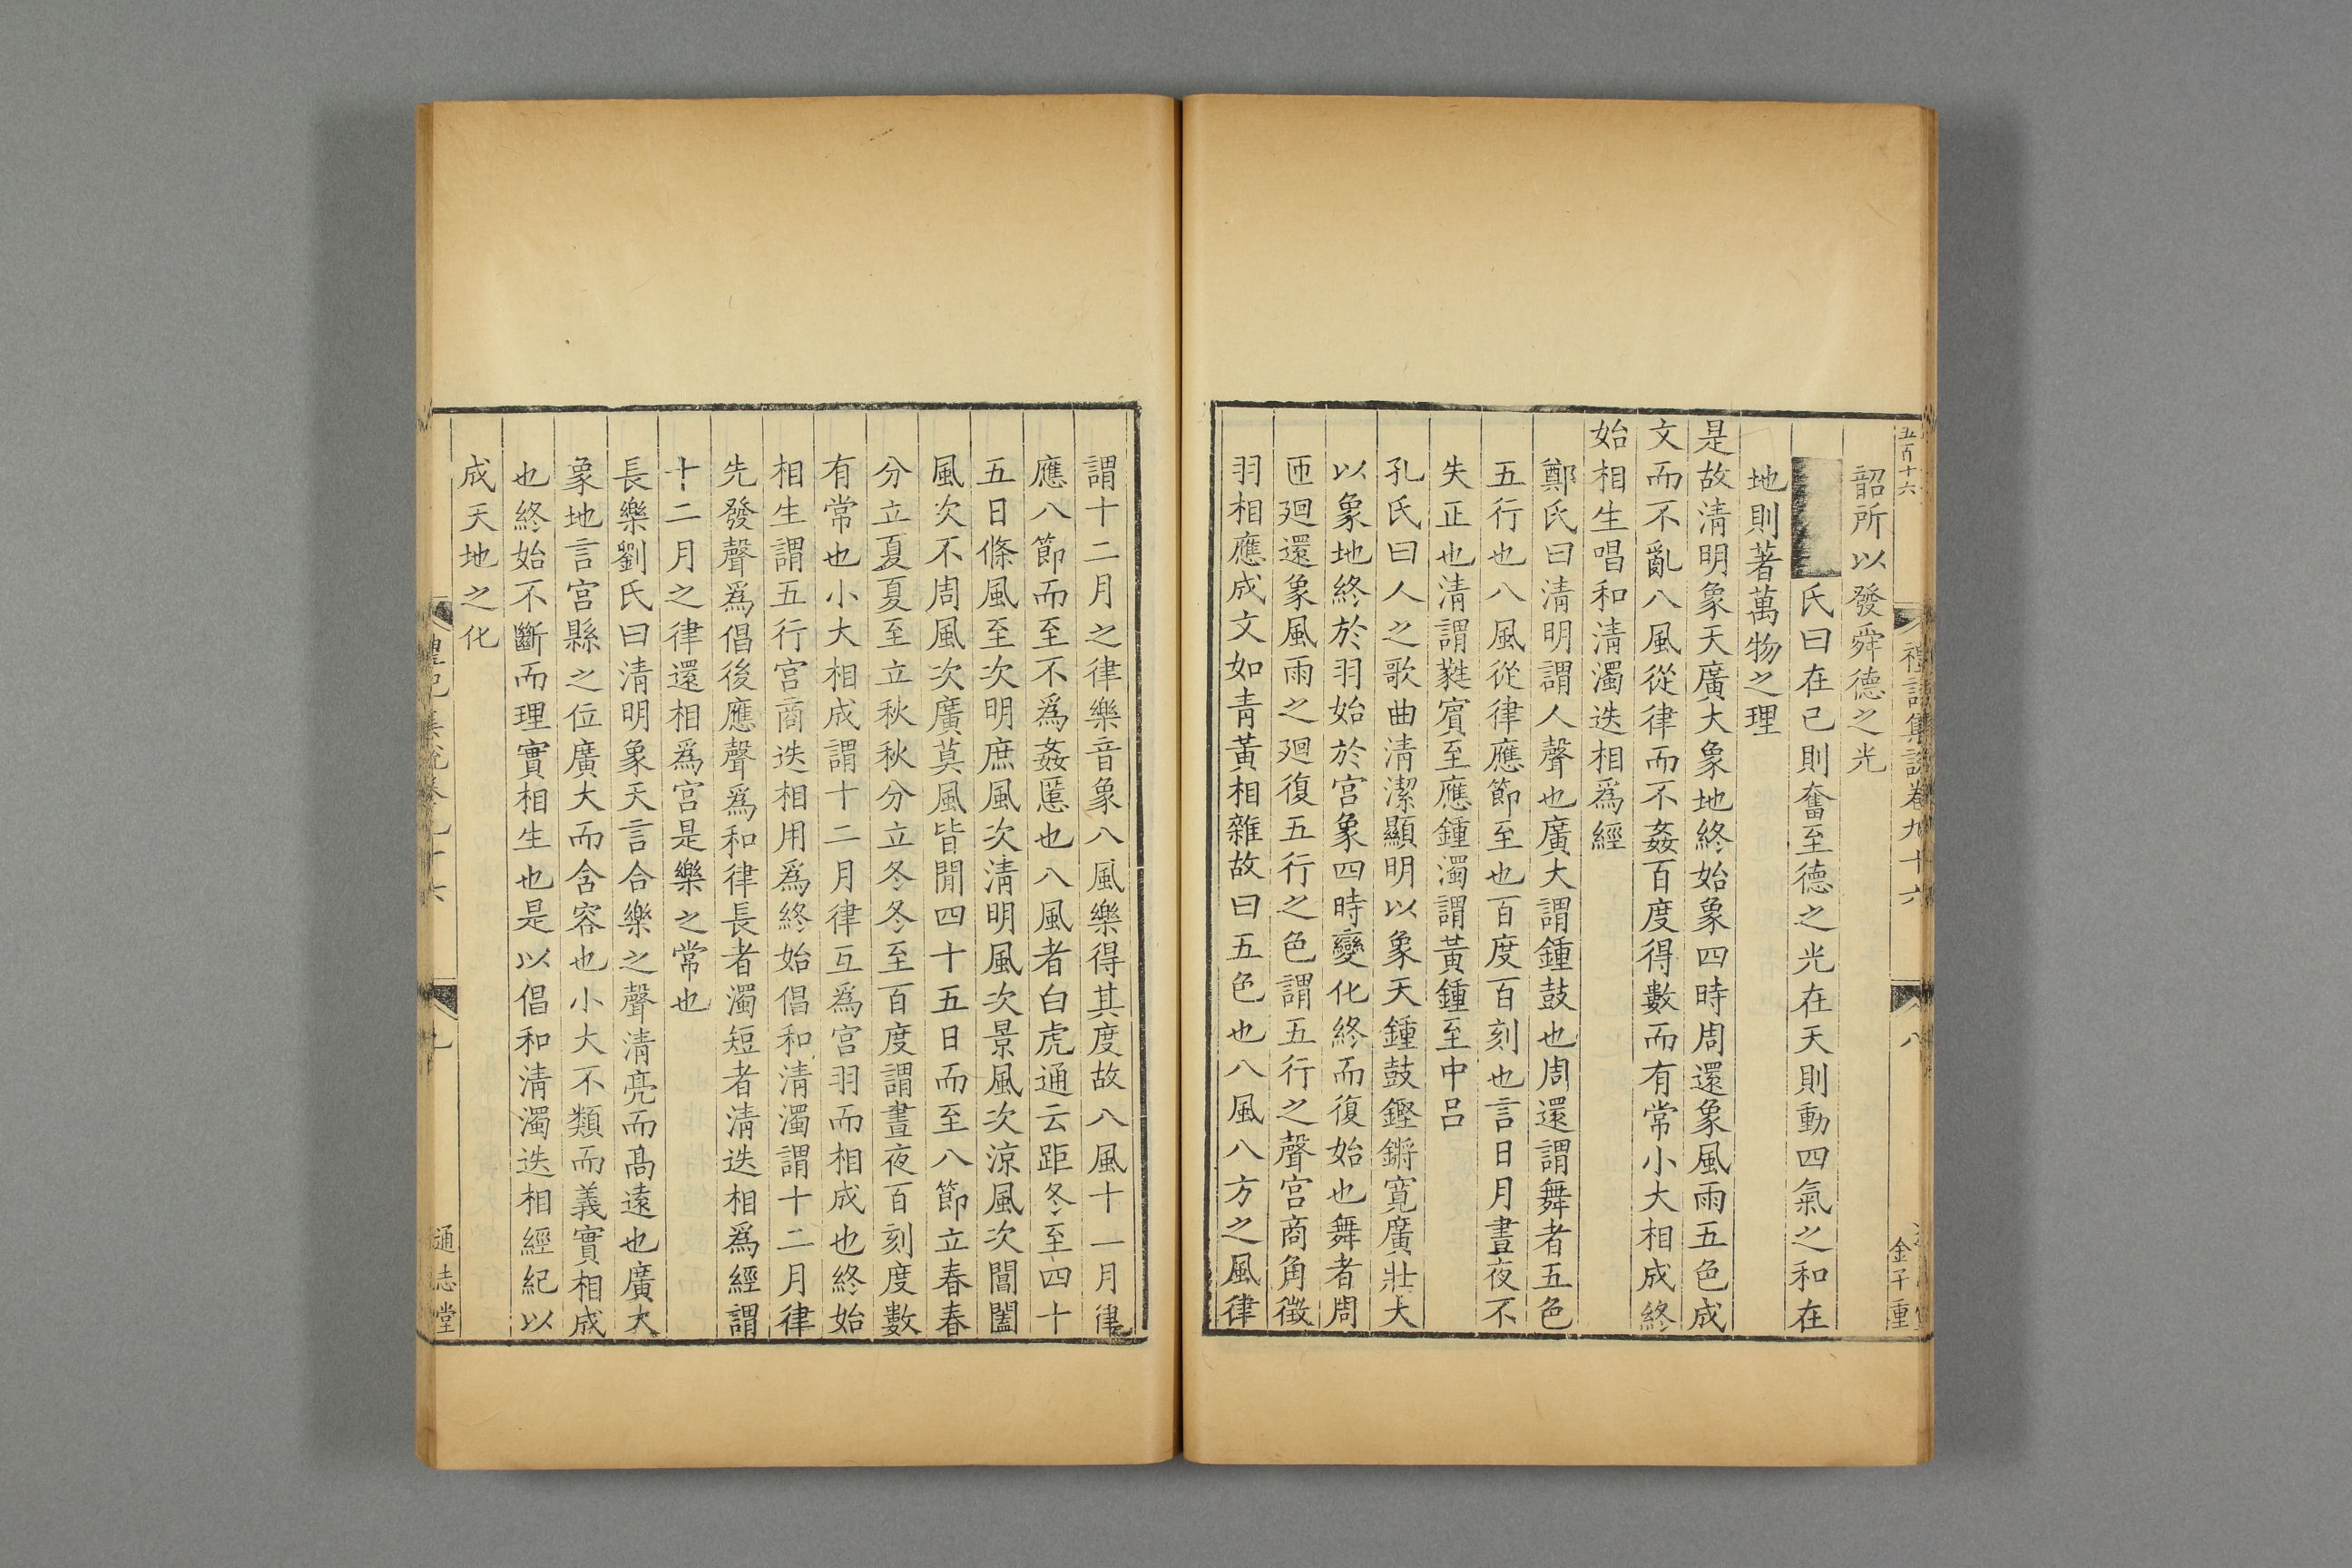 五百十六
禮記集說卷九十六
八
金子重
韶所以發舜德之光
氏曰在己則奮至德之光在天則動四氣之和在
地則著萬物之理
是故清明象天廣大象地終始象四時周還象風雨五色成
文而不亂八風從律而不姦百度得數而有常小大相成終
始相生唱和清濁迭相爲經
鄭氏曰清明謂人聲也廣大謂鍾鼓也周還謂舞者五色
五行也八風從律應節至也百度百刻也言日月晝夜不
失正也清謂蕤賓至應鍾濁謂黃鍾至中呂
孔氏曰人之歌曲清潔顯明以象天鍾鼓鏗鏘寬廣壯大
以象地終於羽始於宮象四時變化終而復始也舞者周
匝廻還象風雨之廻復五行之色謂五行之聲宮商角徵
羽相應成文如青黃相雜故曰五色也八風八方之風律
謂十二月之律樂音象八風樂得其度故八風十一月律
應八節而至不爲姦慝也八風者白虎通云距冬至四十
五日條風至次明庶風次清明風次景風次涼風次閶闔
風次不周風次廣莫風皆閒四十五日而至八節立春春
分立夏夏至立秋秋分立冬冬至百度謂晝夜百刻度數
有常也小大相成謂十二月律互爲宮羽而相成也終始
相生謂五行宮商迭相用爲終始倡和清濁謂十二月律
先發聲爲倡後應聲爲和律長者濁短者清迭相爲經謂
十二月之律還相爲宮是樂之常也
長樂劉氏曰清明象天言合樂之聲清亮而高遠也廣大
象地言宮縣之位廣大而含容也小大不類而義實相成
也終始不斷而理實相生也是以倡和清濁迭相經紀以
成天地之化
通志堂